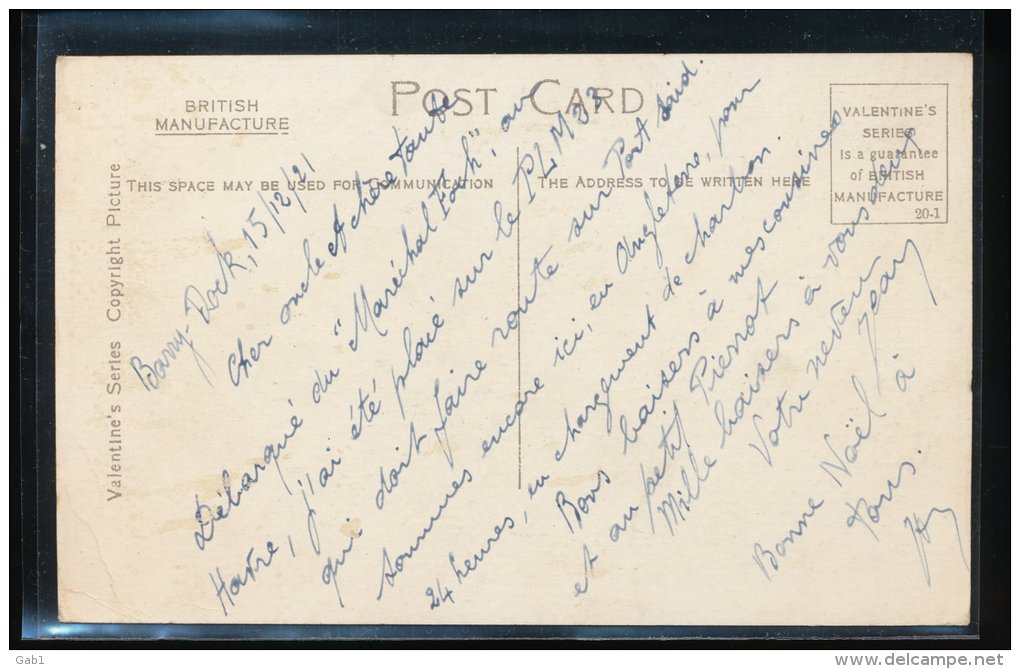 POST CARD
BRITISH
MANUFACTURE
THIS SPACE MAY BE USED FOR COMMUNICATION
THE ADDRESS TO BE WRITTEN HERE
VALENTINE'S
SERIES
Is a guarantee
of BRITISH
MANUFACTURE
20-1
Valentine's Series Copyright Picture
Barry-Dock, 15/12/21
Cher oncle et chère tante
Débarqué du "Maréchal Foch", au
Havre, j'ai été placé sur le PLM 23
qui doit faire route sur Port Saïd.
sommes encore ici, en Angleterre, pour
24 heures, en chargement de charbon.
Bons baisers à mes cousines
et au petit Pierrot
Mille baisers à vous deux
Votre neveu
Jean
Bonne Noël à
Tous.
Gab1
http://www.delcampe.net